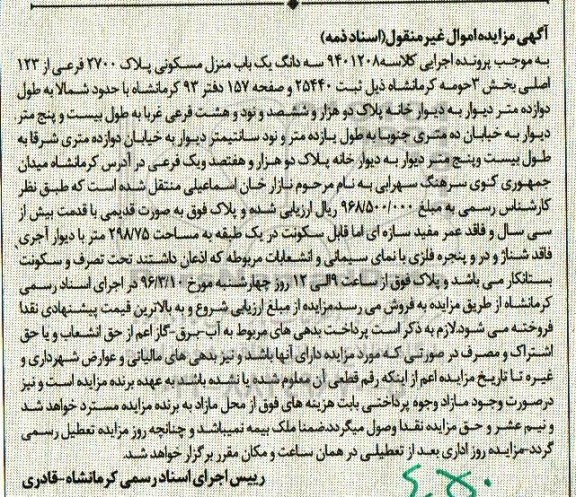 آگهی مزایده اموال غیر منقول(اسناد ذمه)
به موجب پرونده اجرایی کلاسه ۹۴۰۱۲۰۸ سه دانگ یک باب منزل مسکونی پلاک ۲۷۰۰ فرعی از ۱۲۳
اصلی بخش ۳حومه کرمانشاه ذیل ثبت ۲۵۴۴۰ و صفحه ۱۵۷ دفتر ۹۳ کرمانشاه با حدود شمالا به طول
دوازده متر دیوار به دیوار خانه پلاک دو هزار و ششصد و نود و هشت فرعی غربا به طول بیست و پنج متر
دیوار به خیابان ده متری جنوبا به طول یازده متر و نود سانتیمتر دیوار به خیابان دوازده متری شرقا به
طول بیست وپنج متر دیوار به دیوار خانه پلاک دو هزار و هفتصد ویک فرعی در آدرس کرمانشاه میدان
جمهوری کوی سرهنگ سهرابی به نام مرحوم نازار خان اسماعیلی منتقل شده است که طبق نظر
کارشناس رسمی به مبلغ ۹۶۸/۵۰۰/۰۰۰ ریال ارزیابی شده و پلاک فوق به صورت قدیمی با قدمت بیش از
سی سال و فاقد عمر مفید سازه ای اما قابل سکونت در یک طبقه به مساحت ۲۹۸/۷۵ متر با دیوار آجری
فاقد شناژ و در و پنجره فلزی با نمای سیمانی و انشعابات مربوطه که اذعان داشتند تحت تصرف و سکونت
بستانکار می باشد و پلاک فوق از ساعت ۹الی ۱۲ روز چهارشنبه مورخ ۹۶/۳/۱۰ در اجرای اسناد رسمی
کرمانشاه از طریق مزایده به فروش می رسد.مزایده از مبلغ ارزیابی شروع و به بالاترین قیمت پیشنهادی نقدا
فروخته می شود.لازم به ذکر است پرداخت بدهی های مربوط به آب-برق-گاز اعم از حق انشعاب و یا حق
اشتراک و مصرف در صورتی که مورد مزایده دارای آنها باشد و نیز بدهی های مالیاتی و عوارض شهرداری و
غیره تا تاریخ مزایده اعم از اینکه رقم قطعی آن معلوم شده یا نشده باشد به عهده برنده مزایده است و نیز
درصورت وجود مازاد وجوه پرداختی بابت هزینه های فوق از محل مازاد به برنده مزایده مسترد خواهد شد
و نیم عشر و حق مزایده نقدا وصول میگردد.ضمنا ملک بیمه نمیباشد و چنانچه روز مزایده تعطیل رسمی
گردد-مزایده روز اداری بعد از تعطیلی در همان ساعت و مکان مقرر برگزار خواهد شد.
رییس اجرای اسناد رسمی کرمانشاه-قادری